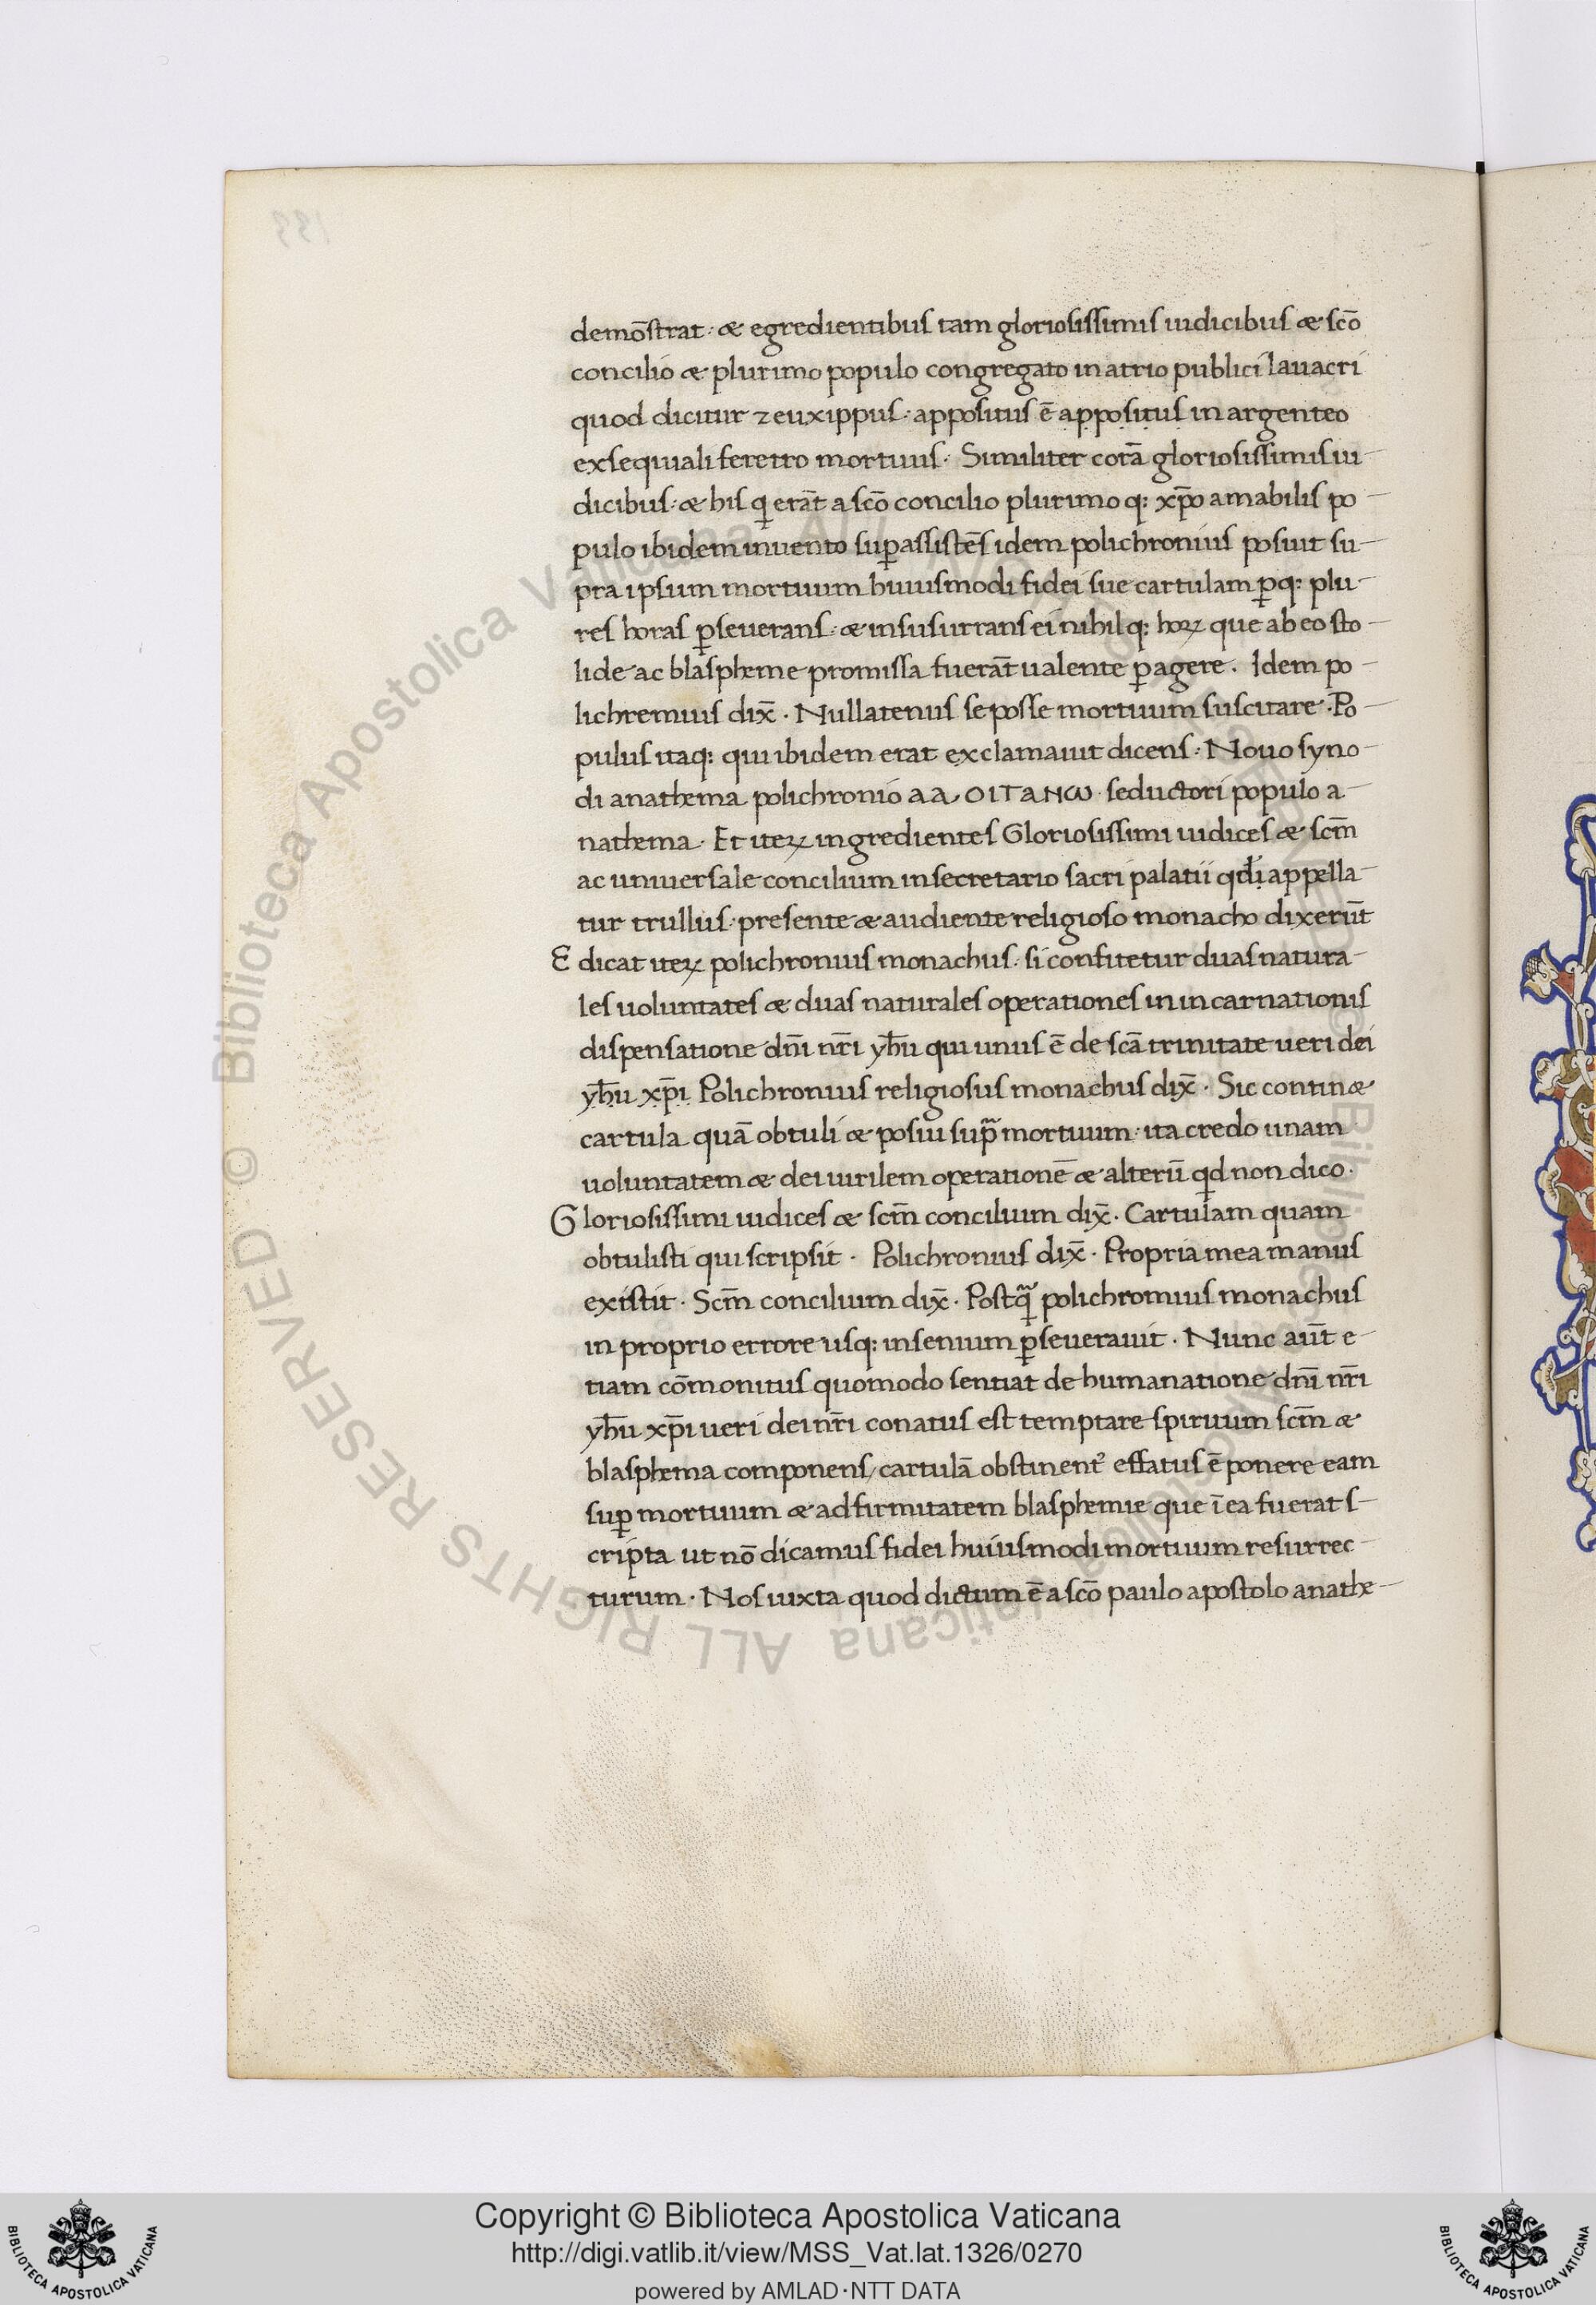 demōstrat· & egredientibus tam gloriosissimis iudicibus & scō
concilio & plurimo populo congregato in atrio publici lauacri
quod dicitur zeuxippus· appositus ē appositus in argenteo
exsequiali feretro mortuus· Similiter corā gloriosissimis iu-
dicibus· & his q̣ erāt a scō concilio plurimo q: xp̄o amabilis po-
pulo ibidem inuento suꝑassistēs idem polichronius posuit su-
pra ipsum mortuum huiusmodi fidei sue cartulam ꝑq: plu-
res horas ꝑseuerans· & insusurrans ei nihil q: hoꝝ que ab eo sto-
lide ac blaspheme promissa fuerāt ualente ꝑagere. Idem po-
lichremius dix̄· Nullatenus se posse mortuum suscitare· Po-
pulus itaq: qui ibidem erat exclamauit dicens· Nouo syno-
di anathema polichronio aa OITANω· seductori populo a-
nathema· Et iteꝝ ingredientes Gloriosissimi iudices & scm̄
ac uniuersale concilium in secretario sacri palatii qđi appella-
tur trullus· presente & audiente religioso monacho dixerūt
Edicat iteꝝ polichronius monachus· si confitetur duas natura-
les uoluntates & duas naturales operationes in incarnationis
dispensatione dn̄i nr̄i yħu qui unus ē de scā trinitate ueri dei
yħu xp̄i Polichronius religiosus monachus dix̄· Sic contin&
cartula quā obtuli & posui supͣ mortuum· ita credo unam
uoluntatem & dei uirilem operationē & alterū qd non dico·
Gloriosissimi iudices & scm̄ concilium dix̄· Cartulam quam
obtulisti qui scripsit· Polichronius dix̄· Propria mea manus
existit· Scm̄ concilium dix̄· Postqͣ polichromius monachus
in proprio errore usq: in senium ꝑseuerauit· Nunc aūt e-
tiam cōmonitus quomodo sentiat de humanatione dn̄i nr̄i
yħu xp̄i ueri dei nr̄i conatus est temptare spiruum scm̄ &
blasphema componens/cartulā obstinent᾽ effatus ē ponere eam
suꝑ mortuum & ad firmitatem blasphemie que ī ea fuerat s-
cripta ut nō dicamus fidei huiusmodi mortuum resurrec-
turum· Nos iuxta quod dictum ē a scō paulo apostolo anathe-
199
© Biblioteca Apostolica Vaticana ALL RIGHTS RESERVED
Copyright © Biblioteca Apostolica Vaticana
http://digi.vatlib.it/view/MSS_Vat.lat.1326/0270
powered by AMLAD·NTT DATA
BIBLIOTECA APOSTOLICA VATICANA
BIBLIOTECA APOSTOLICA VATICANA